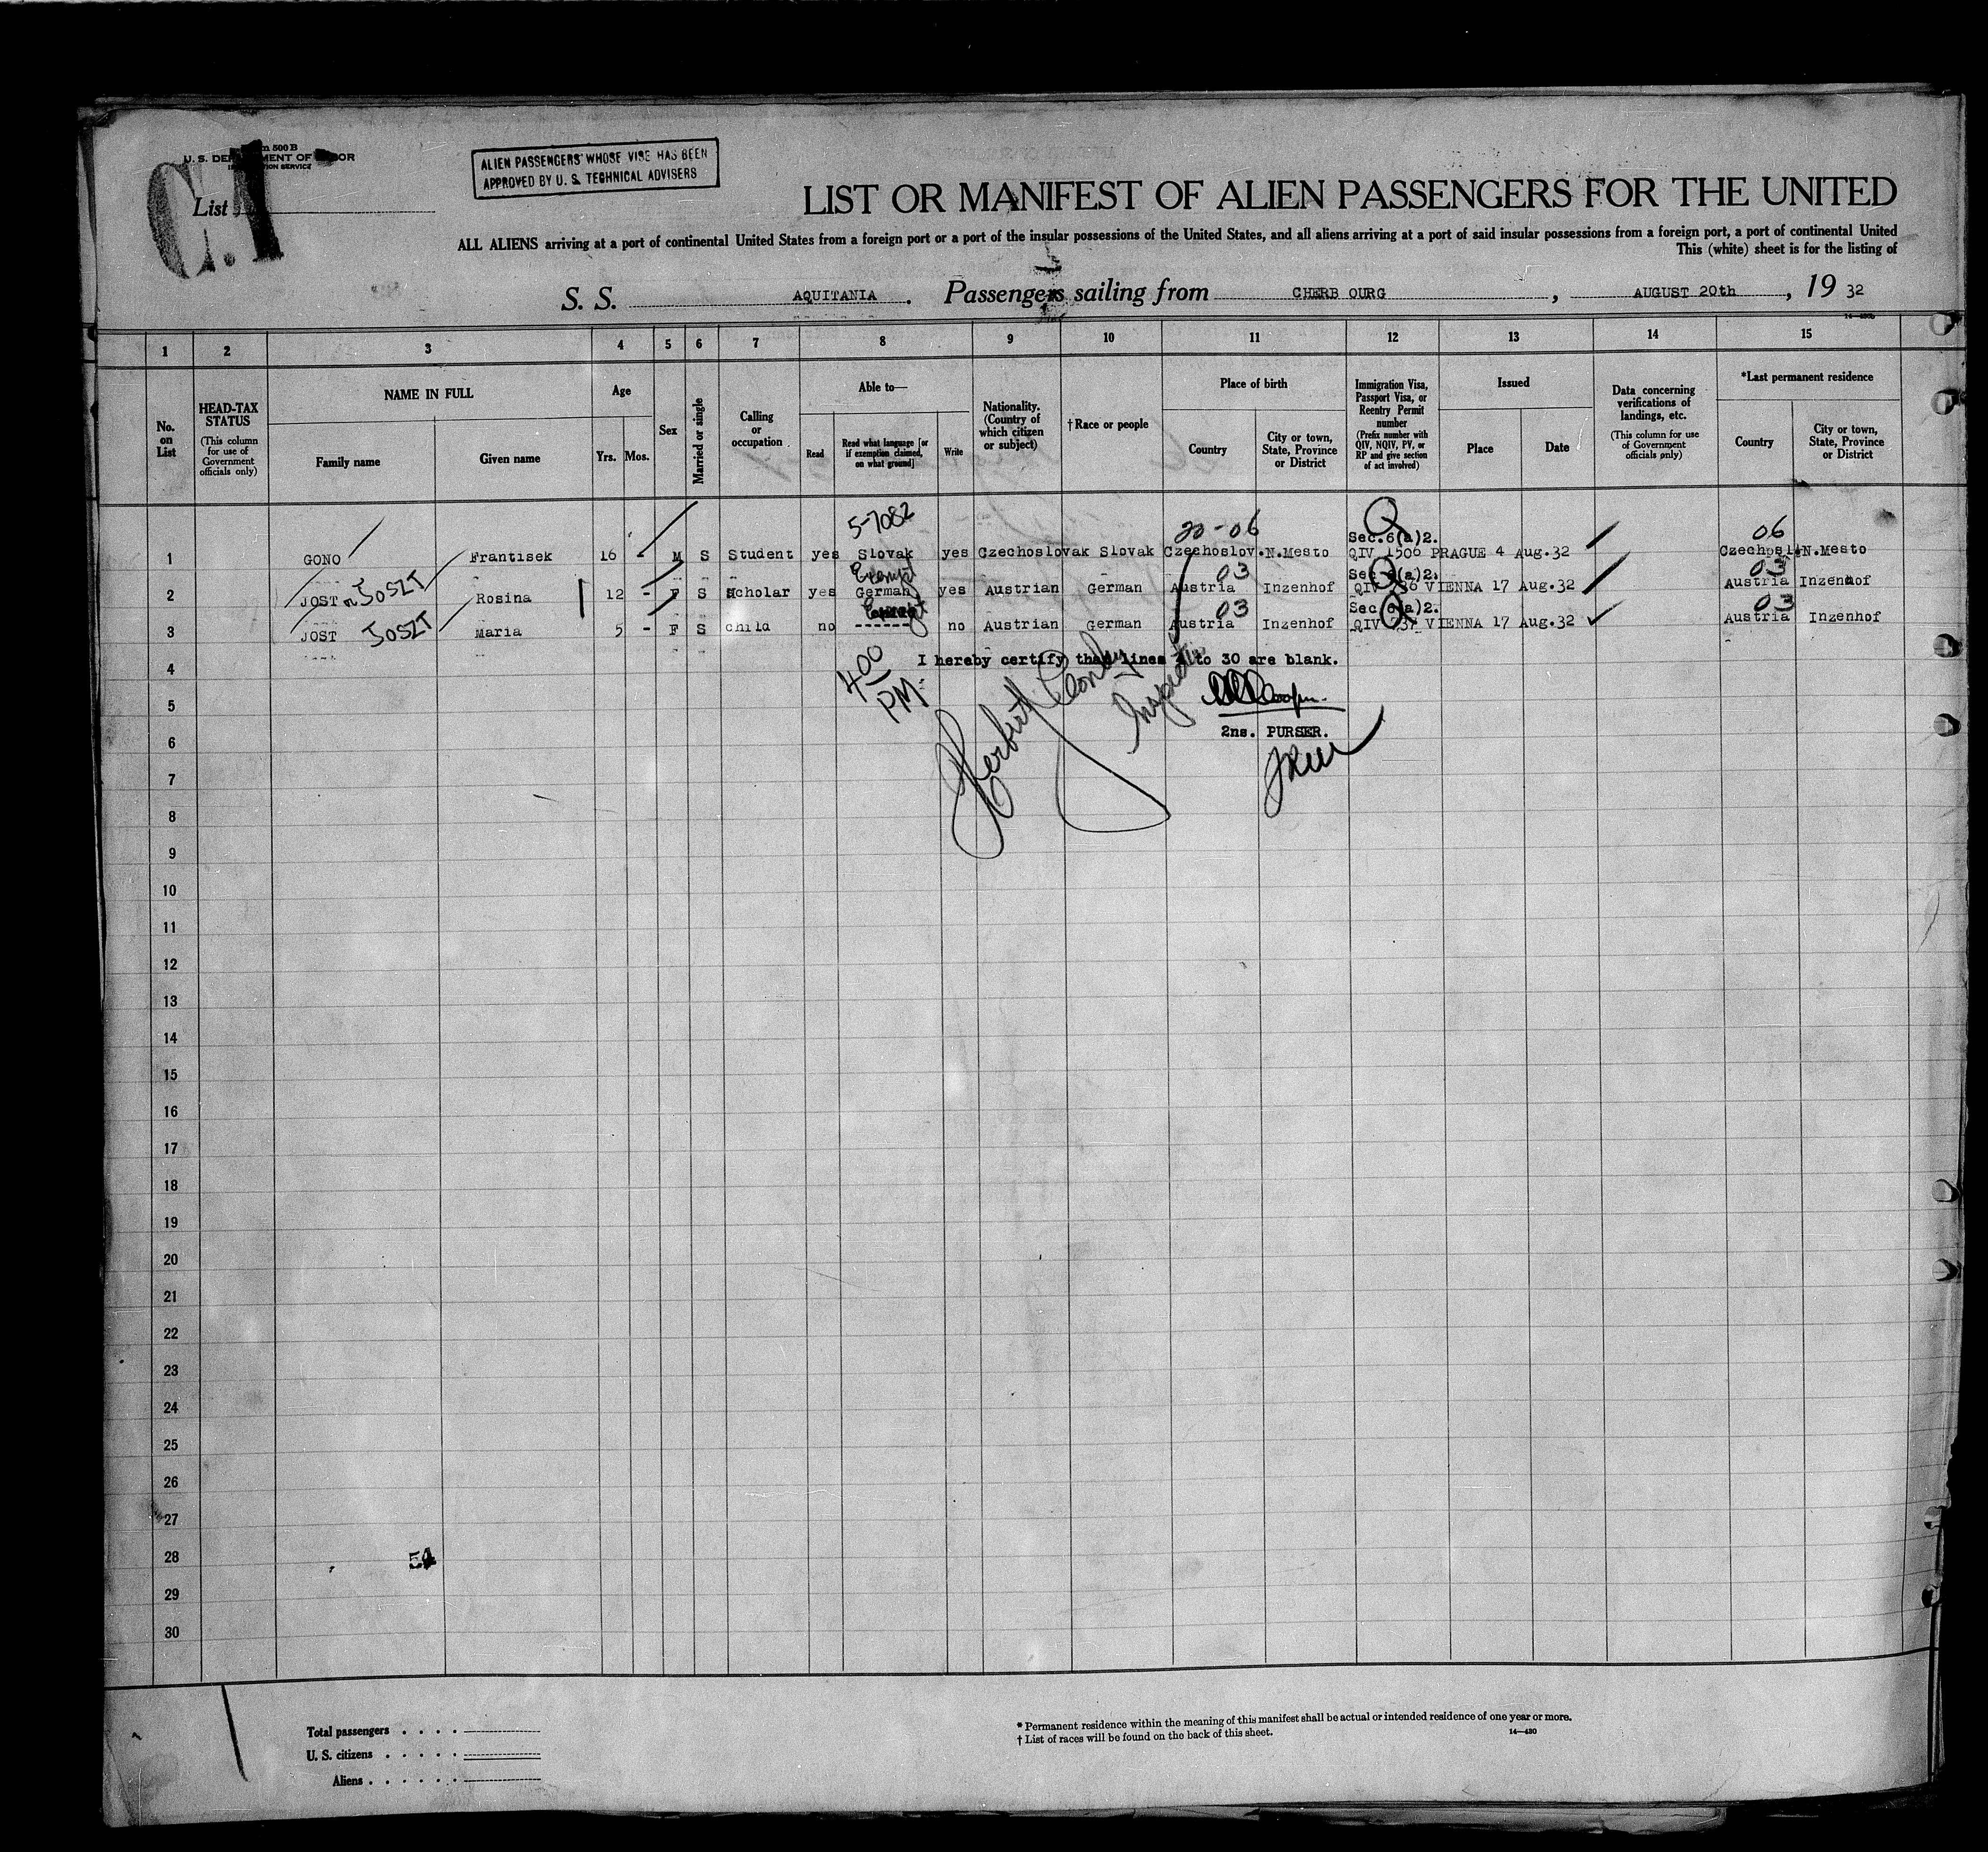 Form 500 B
U. S. DEPARTMENT OF LABOR
IMMIGRATION SERVICE
C.1
List
ALIEN PASSENGERS WHOSE VISE HAS BEEN
APPROVED BY U. S. TECHNICAL ADVISERS
LIST OR MANIFEST OF ALIEN PASSENGERS FOR THE UNITED
ALL ALIENS arriving at a port of continental United States from a foreign port or a port of the insular possessions of the United States, and all aliens arriving at a port of said insular possessions from a foreign port, a port of continental United
This (white) sheet is for the listing of
S. S. AQUITANIA. Passengers sailing from CHERB OURG, AUGUST 20th, 19 32
14—430
1 2 3 4 5 6 7 8 9 10 11 12 13 14 15
No. on List
HEAD-TAX STATUS (This column for use of Government officials only)
NAME IN FULL
Family name Given name
Age
Yrs. Mos.
Sex
Married or single
Calling or occupation
Able to—
Read Read what language [or if exemption claimed, on what ground] Write
Nationality. (Country of which citizen or subject)
†Race or people
Place of birth
Country City or town, State, Province or District
Immigration Visa, Passport Visa, or Reentry Permit number (Prefix number with QIV, NQIV, PV, or RP and give section of act involved)
Issued
Place Date
Data concerning verifications of landings, etc. (This column for use of Government officials only)
*Last permanent residence
Country City or town, State, Province or District
5-7082 20-06 Q Sec.6(a)2. 06
1 GONO Frantisek 16 - M S Student yes Slovak yes Czechoslovak Slovak Czechoslov. N.Mesto QIV 1506 PRAGUE 4 Aug.32 Czechosl. N.Mesto
Exempt 03 Sec.6(a)2. 03
2 JOST JOSZT Rosina 12 - F S Scholar yes German yes Austrian German Austria Inzenhof QIV 736 VIENNA 17 Aug.32 Austria Inzenhof
Exempt 03 Sec.6(a)2. 03
3 JOST JOSZT Maria 5 - F S child no ------ no Austrian German Austria Inzenhof QIV 737 VIENNA 17 Aug.32 Austria Inzenhof
4 I hereby certify that lines 4 to 30 are blank.
400 PM
Herbert
Inspector
5
2ns. PURSER.
6
7
8
9
10
11
12
13
14
15
16
17
18
19
20
21
22
23
24
25
26
27
28
54
29
30
Total passengers
U. S. citizens
Aliens
* Permanent residence within the meaning of this manifest shall be actual or intended residence of one year or more.
† List of races will be found on the back of this sheet.
14—430